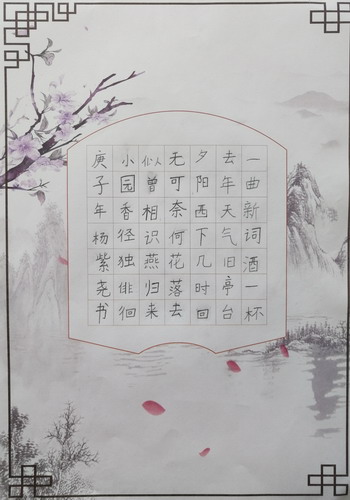 一曲新词酒一杯
去年天气旧亭台
夕阳西下几时回
无可奈何花落去
似曾相识燕归来
小园香径独徘徊
庚子年杨紫尧书